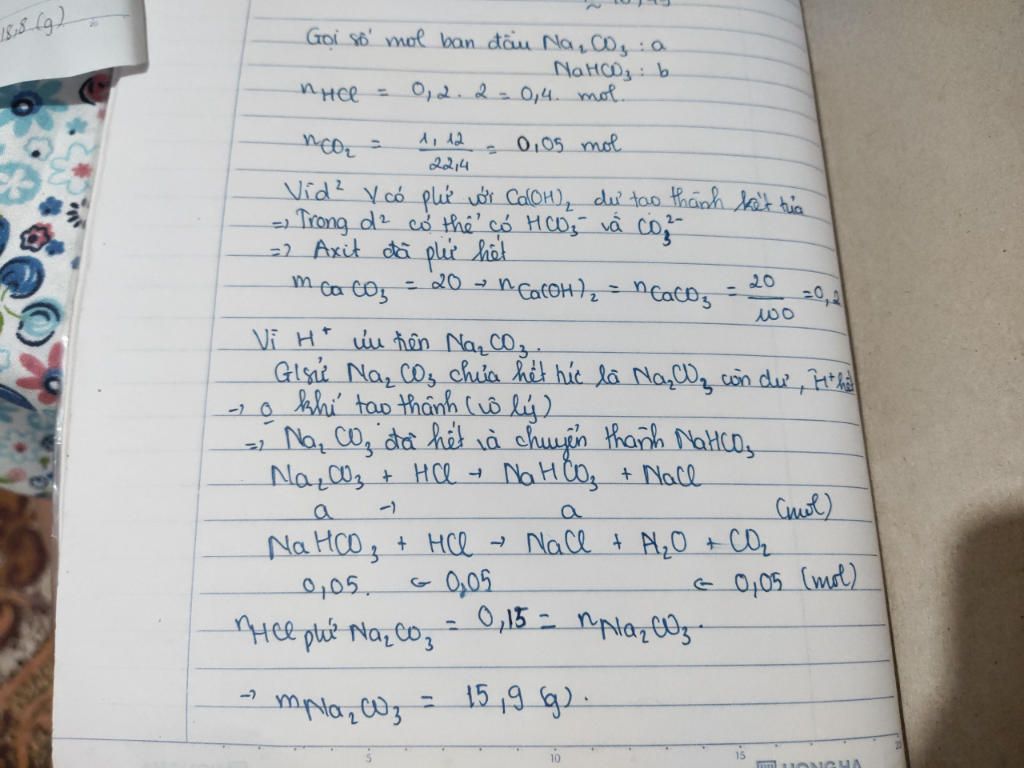 18,8 (g)
Gọi số mol ban đầu Na₂CO₃ : a
NaHCO₃ : b
nHCl = 0,2 . 2 = 0,4 . mol.
nCO₂ = 1,12/22,4 = 0,05 mol
Vì d² Y có phứ với Ca(OH)₂ dư tạo thành kết tủa
=> Trong d² có thể có HCO₃⁻ và CO₃²⁻
=> Axit đã phứ hết
mCaCO₃ = 20 → nCa(OH)₂ = nCaCO₃ = 20/100 = 0,2
Vì H⁺ ưu tiên Na₂CO₃.
Gisử Na₂CO₃ chưa hết túc là Na₂CO₃ còn dư, H⁺ hết
→ o khí tạo thành (vô lý)
=> Na₂CO₃ đã hết và chuyển thành NaHCO₃
Na₂CO₃ + HCl → NaHCO₃ + NaCl
a → a (mol)
NaHCO₃ + HCl → NaCl + H₂O + CO₂
0,05. ← 0,05 ← 0,05 (mol)
nHCl phứ Na₂CO₃ = 0,15 = nNa₂CO₃.
→ mNa₂CO₃ = 15,9 (g).
5 10 15 20
HONGHA